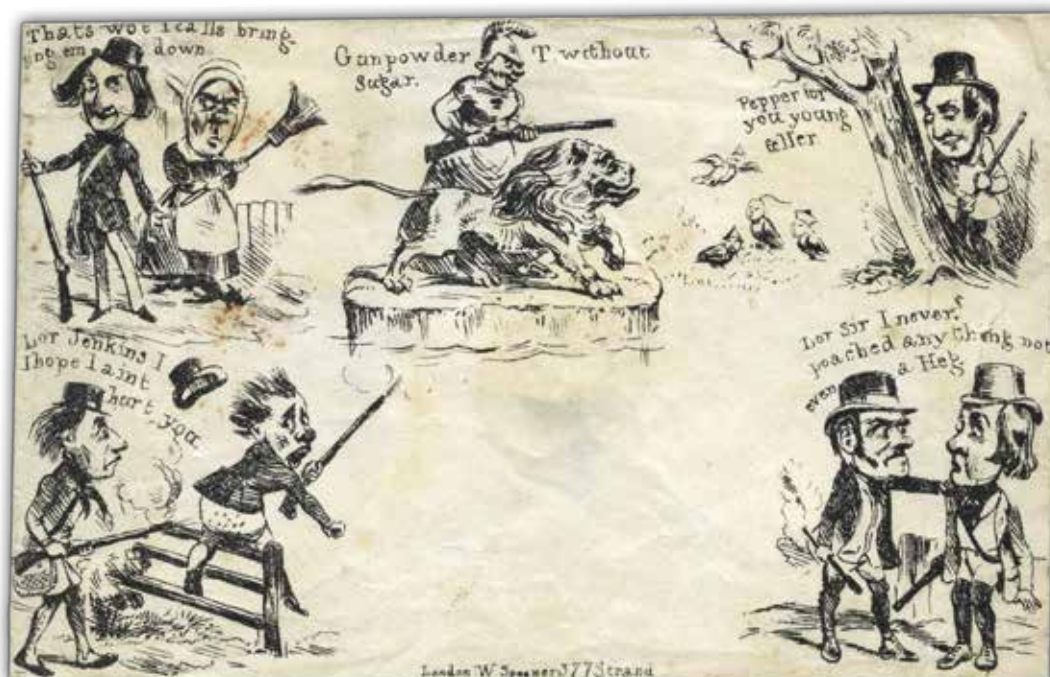 Thats wot I calls bring
ing em down.
Gunpowder T without
Sugar.
Pepper for
you young
feller
Lor Jenkins I
I hope I aint
hurt you
Lor Sir I never
poached any theng not
even a Heg
London W Spooner 377 Strand